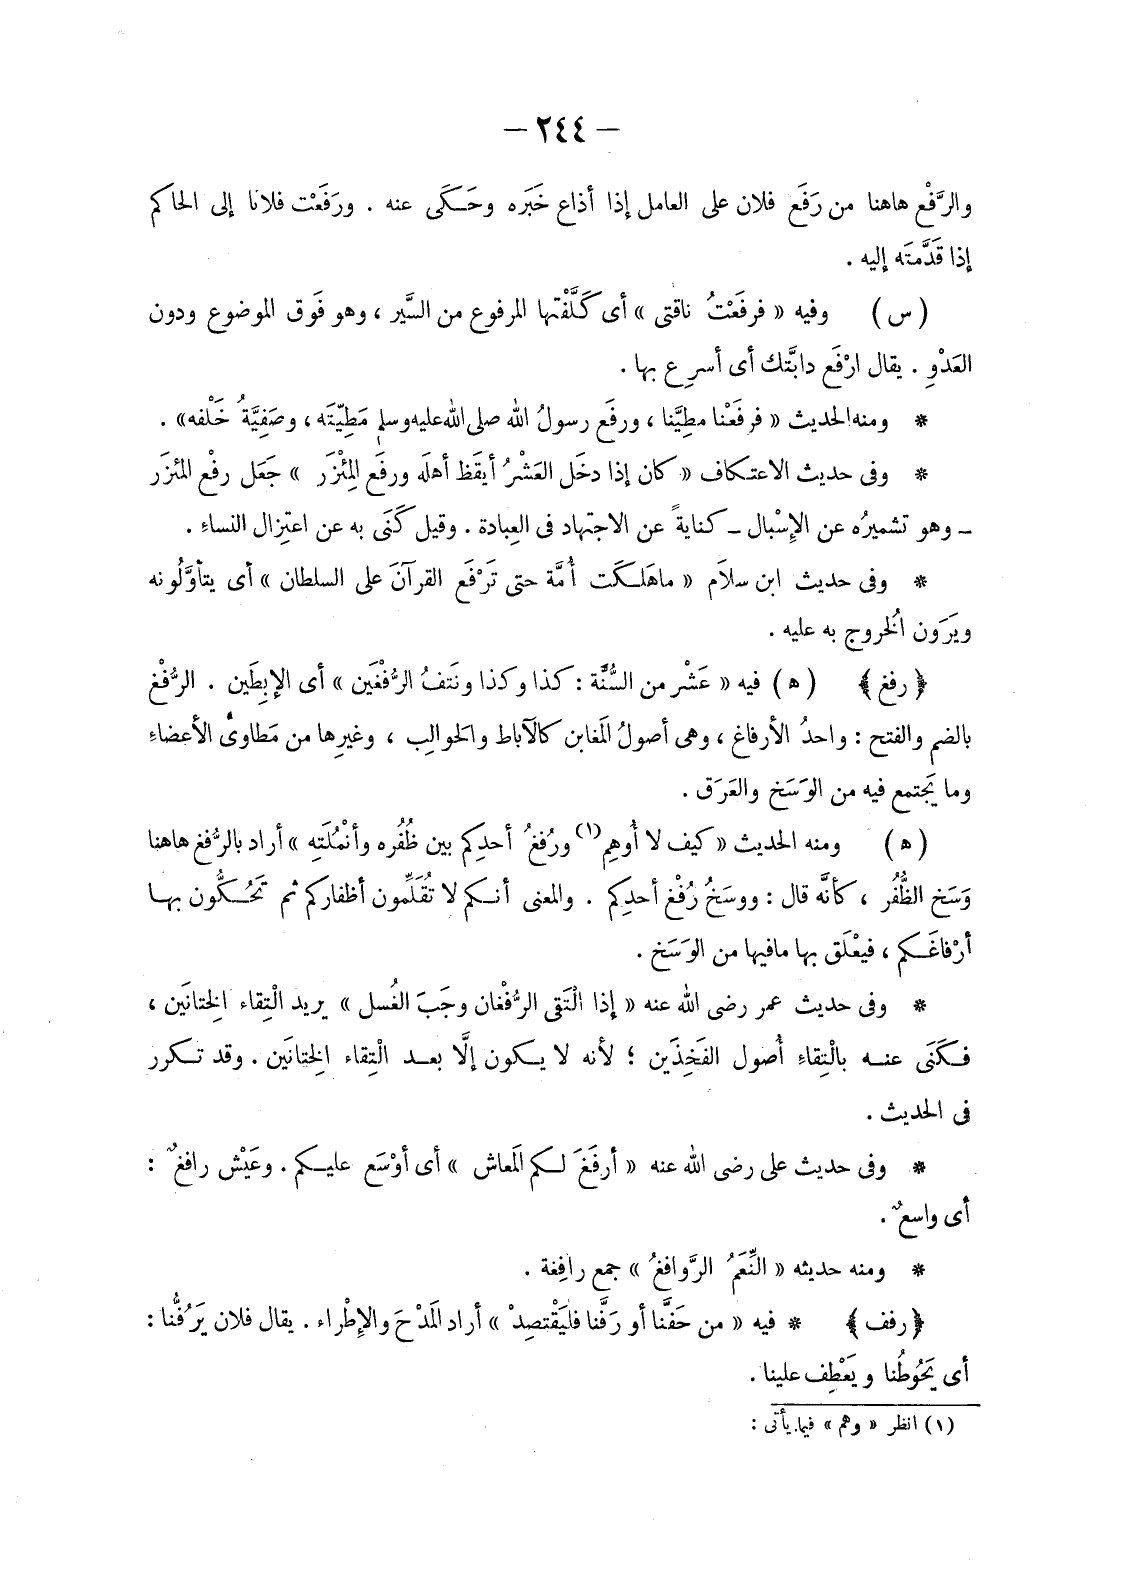 — ٢٤٤ —
والرَّفْع هاهنا من رَفَع فلان على العامل إذا أذاع خَبَره وحَكَى عنه . ورَفَعْت فلانا إلى الحاكم
إذا قَدَّمتَه إليه .
( س ) وفيه « فرفَعْتُ ناقتى » أى كَلَّفْتها المرفوع من السَّير ، وهو فَوق الموضوع ودون
العَدْوِ . يقال ارْفَع دابَّتك أى أسرِع بها .
* ومنه الحديث « فرفَعْنا مطِيَّنا ، ورفَع رسولُ الله صلى الله عليه وسلم مَطِيّتَه ، وصَفِيَّةُ خَلْفه» .
* وفى حديث الاعتكاف « كان إذا دخَل العَشْرُ أيقَظ أهلَه ورفَع المِئْزَر » جَعَل رفْع المئزَر
ـ وهو تشميرُه عن الإِسْبال ـ كنايةً عن الاجتهاد فى العِبادة . وقيل كَنَى به عن اعتِزال النساءِ .
* وفى حديث ابن سلَام « ماهَلَكَت أُمَّة حتى تَرْفَع القرآنَ على السلطان » أى يتأوَّلُونه
ويَرَون الُخروج به عليه .
﴿ رفغ ﴾ ( ه ) فيه « عَشْر من السُّنَّة : كذا وكذا ونَتفُ الرُّفْغَين » أى الإبِطَين . الرُّفْغ
بالضم والفتح : واحدُ الأرفاغ ، وهى أصولُ الَمغابن كالآباط والحوالِب ، وغيرِها من مَطاوىْ الأعضاءِ
وما يَجتمع فيه من الوَسَخ والعَرَق .
( ه ) ومنه الحديث « كيف لا أُوهِم(١) ورُفغُ أحدِكم بين ظُفُره وأنْمُلَتِه » أراد بالرُّفغ هاهنا
وَسَخ الظُّفُر ، كأنَّه قال : ووسَخُ رُفْغ أحدِكم . والمعنى أنكم لا تُقَلِّمون أظفاركم ثم تَحُكُّون بها
أرْفاغَكم ، فيعْلَق بها مافيها من الوَسَخ .
* وفى حديث عمر رضى الله عنه « إذا الْتَقى الرُّفْغان وجَبَ الغُسل » يريد الْتِقاء الِختانَين ،
فكَنَى عنه بالْتِقاءِ أُصول الفَخِذَين ؛ لأنه لا يكون إلَّا بعد الْتِقاء الِختانَين . وقد تكرر
فى الحديث .
* وفى حديث على رضى الله عنه « أرفَغَ لكم الَمعاش » أى أوْسَع عليكم . وعَيْش رافغٌ :
أى واسعٌ .
* ومنه حديثه « النِّعَمُ الرَّوافغُ » جمع رافِغة .
﴿ رفف ﴾ * فيه « من حَفَّنا أو رَفَّنا فليَقْتصِدْ » أراد الَمدْحَ والإِطْراء . يقال فلان يَرُفُّنا :
أى يَحُوطُنا ويَعْطِف علينا .
(١) انظر « وهم » فيما يأتى :